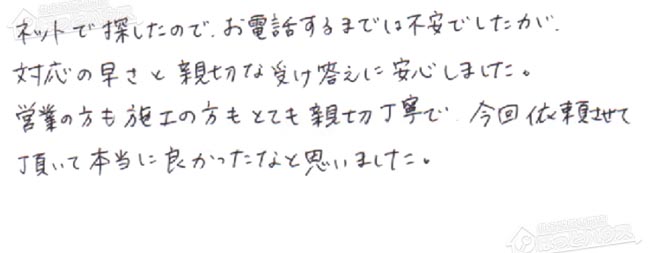 ネットで探したので、お電話するまでは不安でしたが、
対応の早さと親切な受け答えに安心しました。
営業の方も施工の方もとても親切丁寧で、今回依頼させて
頂いて本当に良かったなと思いました。